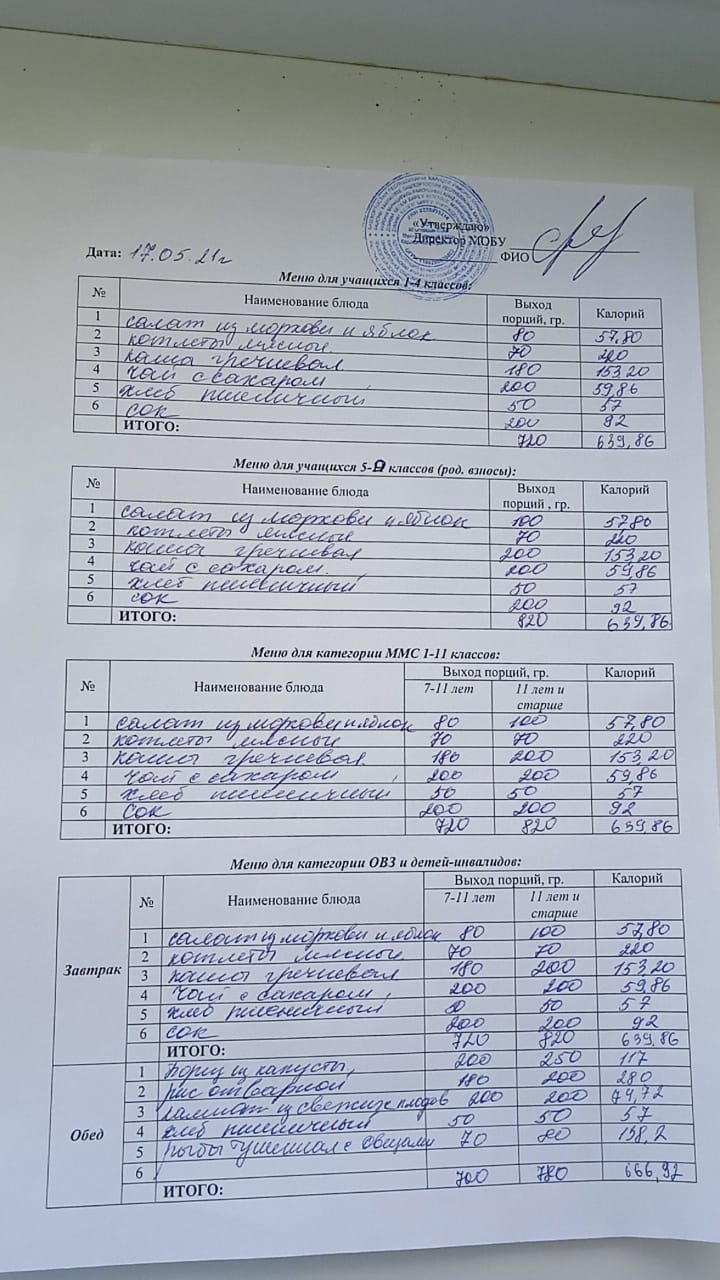 «Утверждаю»
Директор МОБУ
Дата: 17.05.21г ФИО
Меню для учащихся 1-4 классов:
№ Наименование блюда Выход порций, гр. Калорий
1 салат из моркови и яблок 80 57,80
2 котлеты мясные 70 220
3 каша гречневая 180 153,20
4 чай с сахаром 200 59,86
5 хлеб пшеничный 50 57
6 сок 200 92
ИТОГО: 720 639,86
Меню для учащихся 5-9 классов (род. взносы):
№ Наименование блюда Выход порций , гр. Калорий
1 салат из моркови и яблок 100 57,80
2 котлеты мясные 70 220
3 каша гречневая 200 153,20
4 чай с сахаром. 200 59,86
5 хлеб пшеничный 50 57
6 сок 200 92
ИТОГО: 820 639,86
Меню для категории ММС 1-11 классов:
№ Наименование блюда Выход порций, гр. Калорий
7-11 лет 11 лет и старше
1 салат из моркови и яблок 80 100 57,80
2 котлеты мясные 70 70 220
3 каша гречневая 180 200 153,20
4 чай с сахаром 200 200 59,86
5 хлеб пшеничный 50 50 57
6 сок 200 200 92
ИТОГО: 720 820 639,86
Меню для категории ОВЗ и детей-инвалидов:
№ Наименование блюда Выход порций, гр. Калорий
7-11 лет 11 лет и старше
Завтрак
1 салат из моркови и яблок 80 100 57,80
2 котлеты мясные 70 70 220
3 каша гречневая 180 200 153,20
4 чай с сахаром, 200 200 59,86
5 хлеб пшеничный 50 57
6 сок 200 200 92
ИТОГО: 720 820 639,86
Обед
1 Борщ из капусты, 200 250 117
2 рис отварной 180 200 280
3 из свежих плодов 200 200 74,72
4 хлеб пшеничный 50 50 57
5 рыбы тушенная с овощами 70 80 138,2
6
ИТОГО: 700 780 666,92